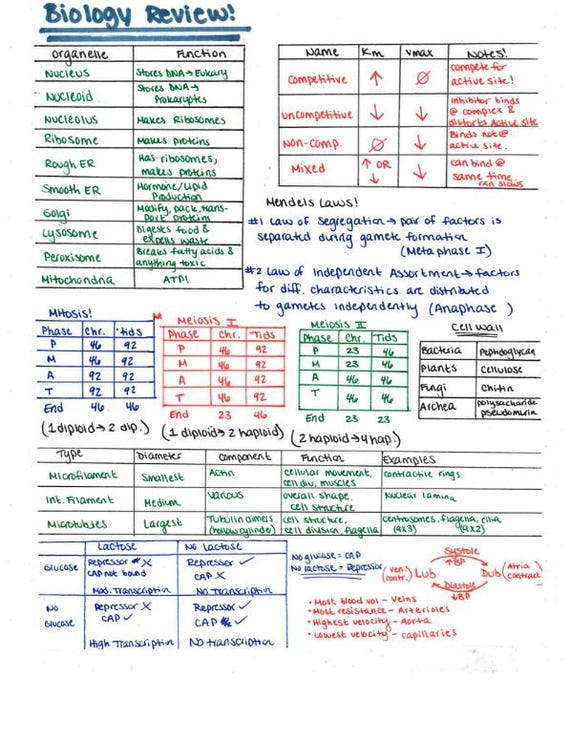 Biology Review!
Organelle Function
Nucleus Stores DNA → Eukary
Nucleoid Stores DNA → Prokaryotes
Nucleolus Makes Ribosomes
Ribosome Makes proteins
Rough ER Has ribosomes, makes proteins
Smooth ER Hormone/Lipid Production
Golgi Modify, pack, transport proteins
Lysosome Digests food & expells waste
Peroxisome Breaks fatty acids & anything toxic
Mitochondria ATP!
Name Km Vmax Notes!
Competitive ↑ Ø compete for active site!
Uncompetitive ↓ ↓ Inhibitor binds @ complex & distorts Active site
Non-comp. Ø ↓ Binds not @ active site.
Mixed ↑ OR ↓ ↓ can bind @ same time rxn slows
Mendels Laws!
#1 Law of Segregation → pair of factors is
separated during gamete formation
(Metaphase I)
#2 Law of Independent Assortment → factors
for diff. characteristics are distributed
to gametes independently (Anaphase )
Mitosis!
Phase Chr. 'tids
P 46 92
M 46 92
A 92 92
T 92 92
End 46 46
(1 diploid → 2 dip.)
Meiosis I
Phase Chr. Tids
P 46 92
M 46 92
A 46 92
T 46 92
End 23 46
(1 diploid → 2 haploid)
Meiosis II
Phase Chr. Tids
P 23 46
M 23 46
A 46 46
T 46 46
End 23 23
(2 haploid → 4 hap.)
Cell Wall
Bacteria Peptidoglycan
Plants Cellulose
Fungi Chitin
Archea polysacharide pseudomurin
Type Diameter Component Function Examples
Microfilament Smallest Actin cellular movement, cell div, muscles contractile rings
Int. Filament Medium Various overall shape, cell structure Nuclear lamina
Microtubules Largest Tubulin dimers (hollow cylinder) cell structure, cell division, flagella centrosomes, flagella, cilia (9x3) (9x2)
Lactose No Lactose
Glucose Repressor X Repressor ✓
CAP not bound CAP X
Mod. Transcription No Transcription
No Glucose Repressor X Repressor ✓
CAP ✓ CAP ✓
High Transcription No transcription
No glucose = CAP
No lactose = Repressor
Systole
↑BP
(ven. contr.) Lub Dub (Atria contract)
Diastole
↓BP
• Most blood vol - Veins
• Most resistance - Arterioles
• Highest velocity - Aorta
• Lowest velocity - capillaries